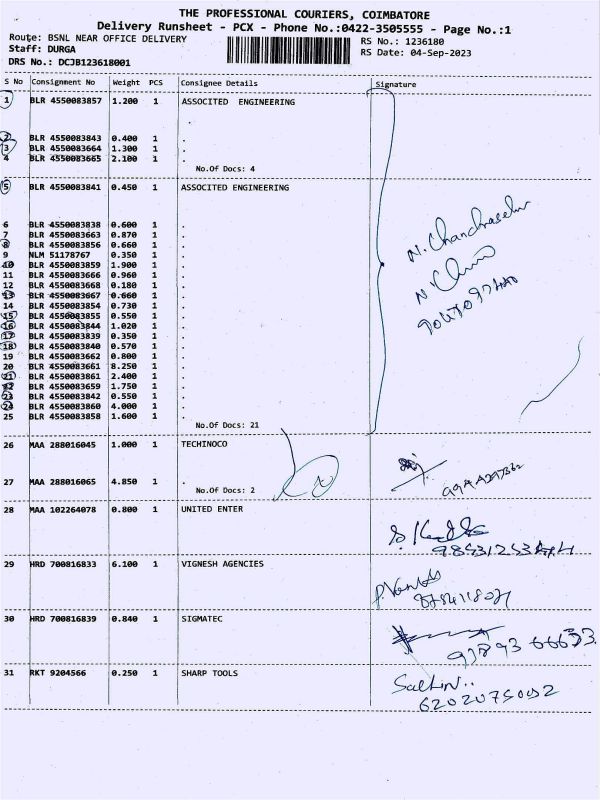 THE PROFESSIONAL COURIERS, COIMBATORE
Delivery Runsheet - PCX - Phone No.:0422-3505555 - Page No.:1
Route: BSNL NEAR OFFICE DELIVERY RS No.: 1236180
Staff: DURGA RS Date: 04-Sep-2023
DRS No.: DCJB123618001
S No Consignment No Weight PCS Consignee Details Signature
1 BLR 4550083857 1.200 1 ASSOCITED ENGINEERING
.
2 BLR 4550083843 0.400 1 .
3 BLR 4550083664 1.300 1 .
4 BLR 4550083665 2.100 1 .
No.Of Docs: 4
5 BLR 4550083841 0.450 1 ASSOCITED ENGINEERING
6 BLR 4550083838 0.600 1 .
7 BLR 4550083663 0.870 1 .
8 BLR 4550083856 0.660 1 .
9 NLM 51178767 0.350 1 .
10 BLR 4550083859 1.900 1 .
11 BLR 4550083666 0.960 1 .
12 BLR 4550083668 0.180 1 .
13 BLR 4550083667 0.660 1 .
14 BLR 4550083854 0.730 1 .
15 BLR 4550083855 0.550 1 .
16 BLR 4550083844 1.020 1 .
17 BLR 4550083839 0.350 1 .
18 BLR 4550083840 0.570 1 .
19 BLR 4550083662 0.800 1 .
20 BLR 4550083661 8.250 1 .
21 BLR 4550083861 2.400 1 .
22 BLR 4550083659 1.750 1 .
23 BLR 4550083842 0.550 1 .
24 BLR 4550083860 4.000 1 .
25 BLR 4550083858 1.600 1 .
No.Of Docs: 21
N. Chandrasekar
26 MAA 288016045 1.000 1 TECHINOCO
27 MAA 288016065 4.850 1 .
No.Of Docs: 2
28 MAA 102264078 0.800 1 UNITED ENTER
29 HRD 700816833 6.100 1 VIGNESH AGENCIES
30 HRD 700816839 0.840 1 SIGMATEC
31 RKT 9204566 0.250 1 SHARP TOOLS